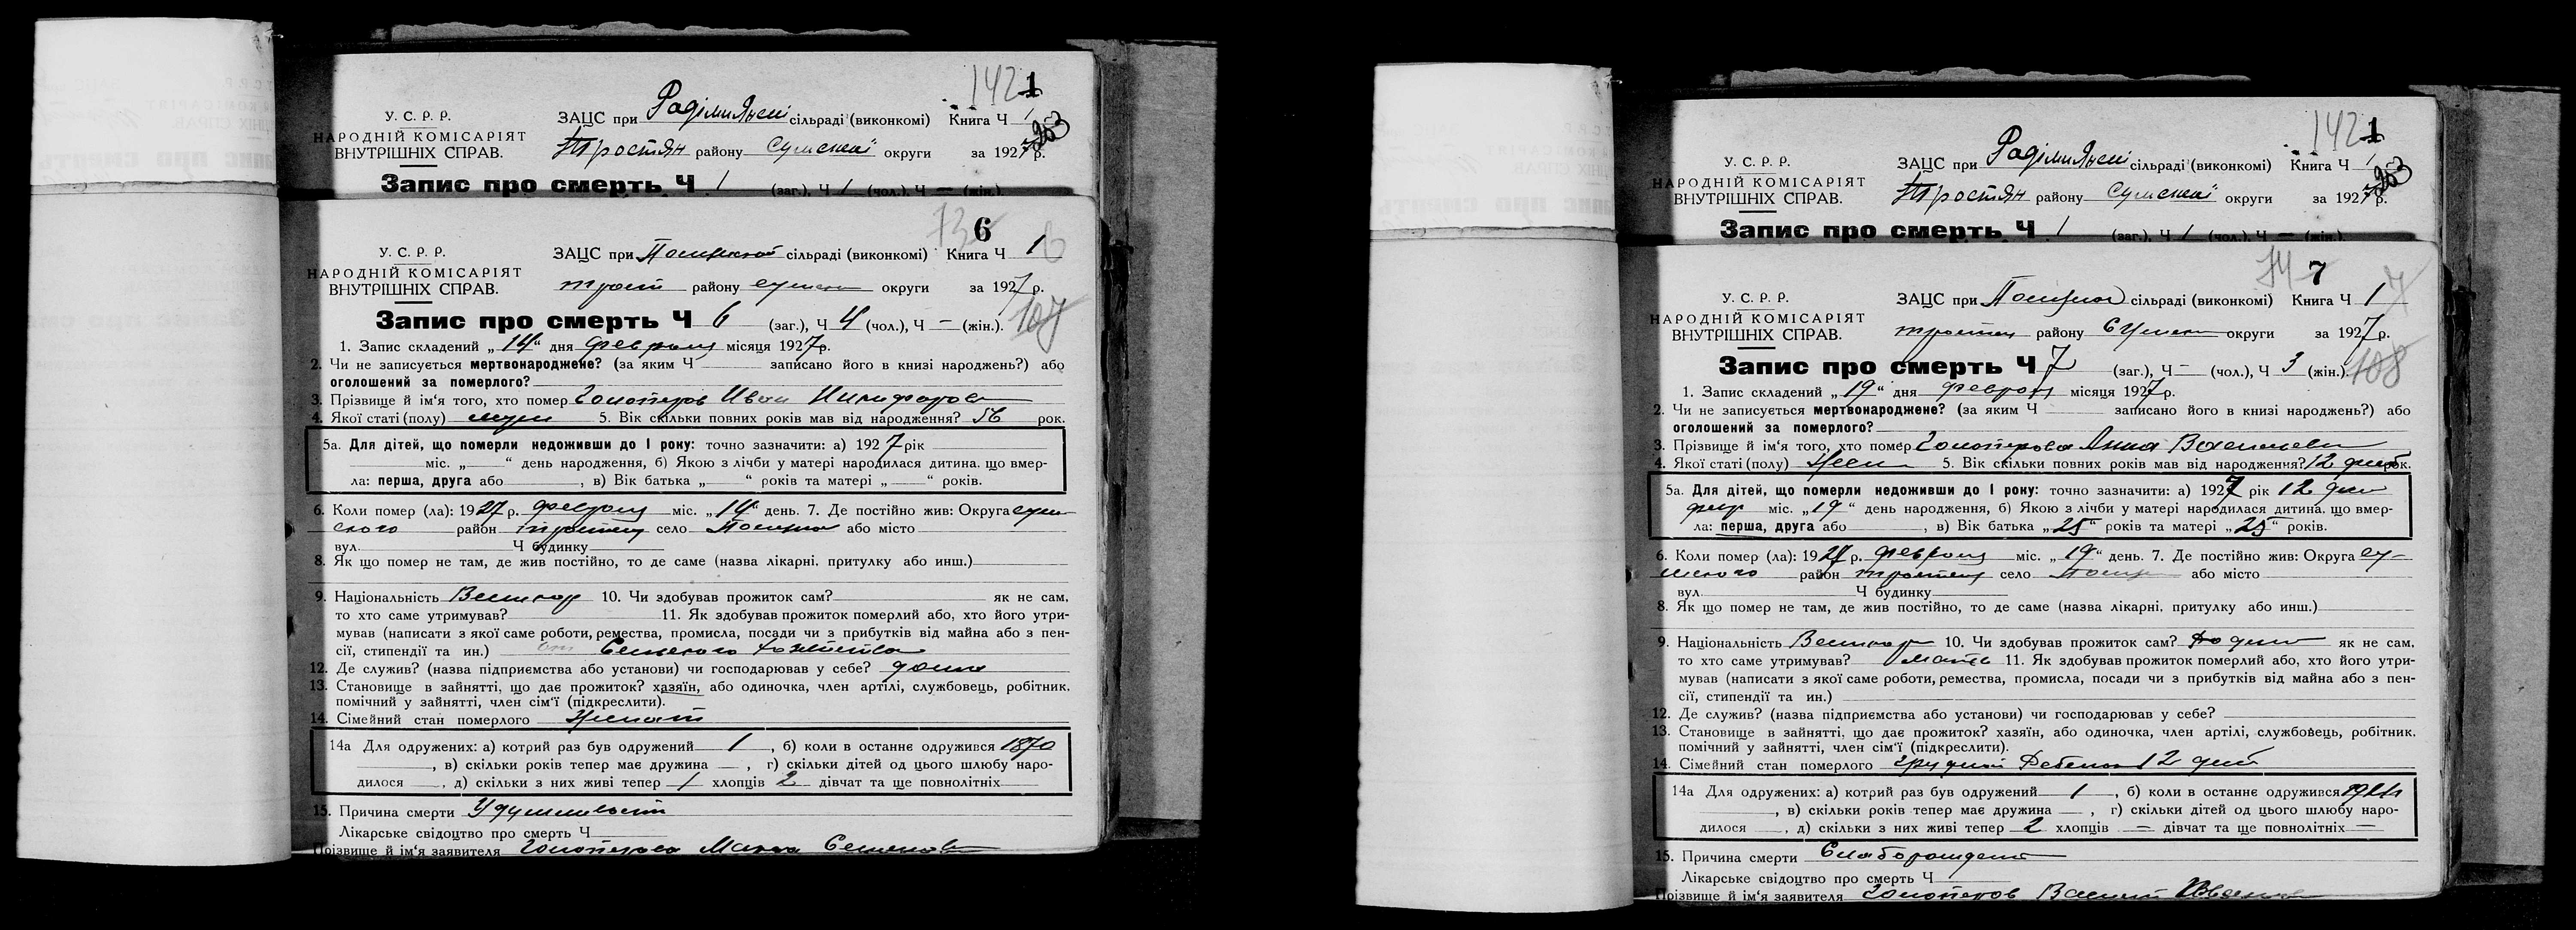 142 1
У. С. Р. Р.
НАРОДНІЙ КОМІСАРІЯТ
ВНУТРІШНІХ СПРАВ.
ЗАЦС при сільраді (виконкомі) Книга Ч 1
Тростян району Сумської округи за 1927 р.
Запис про смерть Ч 1 (заг.), Ч 1 (чол.), Ч — (жін.).
6
У. С. Р. Р.
НАРОДНІЙ КОМІСАРІЯТ
ВНУТРІШНІХ СПРАВ.
ЗАЦС при сільраді (виконкомі) Книга Ч 1
трост району сумск округи за 1927 р.
Запис про смерть Ч 6 (заг.), Ч 4 (чол.), Ч — (жін.). 107
1. Запис складений „14“ дня февраля місяця 1927 р.
2. Чи не записується мертвонароджене? (за яким Ч записано його в книзі народжень?) або
оголошений за померлого?
3. Прізвище й ім'я того, хто помер Иван Никифоров
4. Якої статі (полу) муж 5. Вік скільки повних років мав від народження? 56 рок.
5а. Для дітей, що померли недоживши до 1 року: точно зазначити: а) 1927 рік
міс. „ “ день народження, б) Якою з лічби у матері народилася дитина, що вмер-
ла: перша, друга або , в) Вік батька „ “ років та матері „ “ років.
6. Коли помер (ла): 1927 р. февраля міс. „14“ день. 7. Де постійно жив: Округа сум
ского район тростян село або місто
вул. Ч будинку
8. Як що помер не там, де жив постійно, то де саме (назва лікарні, притулку або инш.)
9. Національність Великор 10. Чи здобував прожиток сам? як не сам,
то хто саме утримував? 11. Як здобував прожиток померлий або, хто його утри-
мував (написати з якої саме роботи, ремества, промисла, посади чи з прибутків від майна або з пен-
сії, стипендії та ин.) от Сельского хозяйства
12. Де служив? (назва підприємства або установи) чи господарював у себе? дома
13. Становище в зайнятті, що дає прожиток? хазяїн, або одиночка, член артілі, службовець, робітник,
помічний у зайнятті, член сім'ї (підкреслити).
14. Сімейний стан померлого женат
14а Для одружених: а) котрий раз був одружений 1 , б) коли в останнє одружився 1870
, в) скільки років тепер має дружина — , г) скільки дітей од цього шлюбу наро-
дилося , д) скільки з них живі тепер 1 хлопців 2 дівчат та ще повнолітніх
15. Причина смерти
Лікарське свідоцтво про смерть Ч
Прізвище й ім'я заявителя
142 1
У. С. Р. Р.
НАРОДНІЙ КОМІСАРІЯТ
ВНУТРІШНІХ СПРАВ.
ЗАЦС при сільраді (виконкомі) Книга Ч 1
Тростян району Сумської округи за 1927 р.
Запис про смерть Ч 1 (заг.), Ч 1 (чол.), Ч — (жін.).
74 7
У. С. Р. Р.
НАРОДНІЙ КОМІСАРІЯТ
ВНУТРІШНІХ СПРАВ.
ЗАЦС при сільраді (виконкомі) Книга Ч 1
тростян району Сумск округи за 1927 р.
Запис про смерть Ч 7 (заг.), Ч — (чол.), Ч 3 (жін.). 108
1. Запис складений „19“ дня февраля місяця 1927 р.
2. Чи не записується мертвонароджене? (за яким Ч записано його в книзі народжень?) або
оголошений за померлого?
3. Прізвище й ім'я того, хто помер Анна Васильевн
4. Якої статі (полу) жен 5. Вік скільки повних років мав від народження? 12 дней рок.
5а. Для дітей, що померли недоживши до 1 року: точно зазначити: а) 1927 рік 12 дней
февр міс. „19“ день народження, б) Якою з лічби у матері народилася дитина, що вмер-
ла: перша, друга або , в) Вік батька „25“ років та матері „25“ років.
6. Коли помер (ла): 1927 р. февраля міс. „19“ день. 7. Де постійно жив: Округа су-
мского район тростян село або місто
вул. Ч будинку
8. Як що помер не там, де жив постійно, то де саме (назва лікарні, притулку або инш.)
9. Національність Великор 10. Чи здобував прожиток сам? як не сам,
то хто саме утримував? мать 11. Як здобував прожиток померлий або, хто його утри-
мував (написати з якої саме роботи, ремества, промисла, посади чи з прибутків від майна або з пен-
сії, стипендії та ин.)
12. Де служив? (назва підприємства або установи) чи господарював у себе?
13. Становище в зайнятті, що дає прожиток? хазяїн, або одиночка, член артілі, службовець, робітник,
помічний у зайнятті, член сім'ї (підкреслити).
14. Сімейний стан померлого грудной Ребенок 12 дней
14а Для одружених: а) котрий раз був одружений 1 , б) коли в останнє одружився
, в) скільки років тепер має дружина — , г) скільки дітей од цього шлюбу наро-
дилося , д) скільки з них живі тепер 2 хлопців — дівчат та ще повнолітніх —
15. Причина смерти
Лікарське свідоцтво про смерть Ч
Прізвище й ім'я заявителя